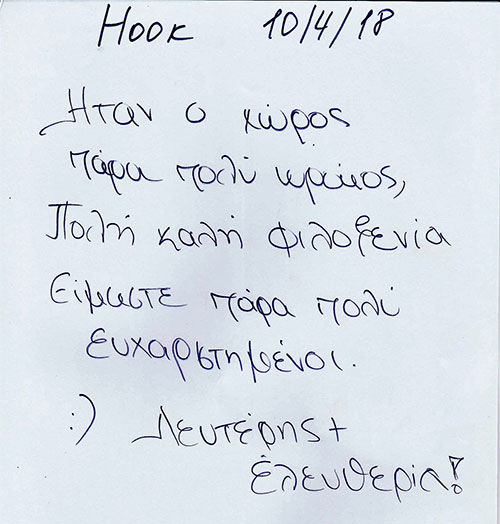 Hook 10/4/18
Ήταν ο χώρος
πάρα πολύ ωραίος,
Πολή καλή φιλοξενία
Είμαστε πάρα πολύ
ευχαρστημένοι.
:) Λευτέρης +
Ελευθερία!